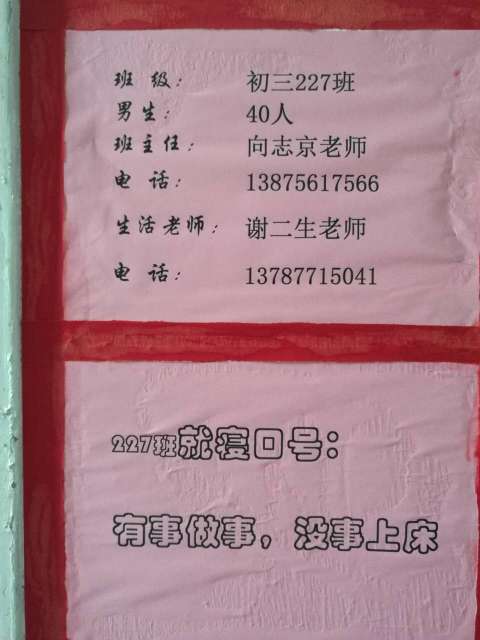 班 级： 初三227班
男生： 40人
班主任： 向志京老师
电 话： 13875617566
生活老师： 谢二生老师
电 话： 13787715041
227班就寝口号：
有事做事，没事上床